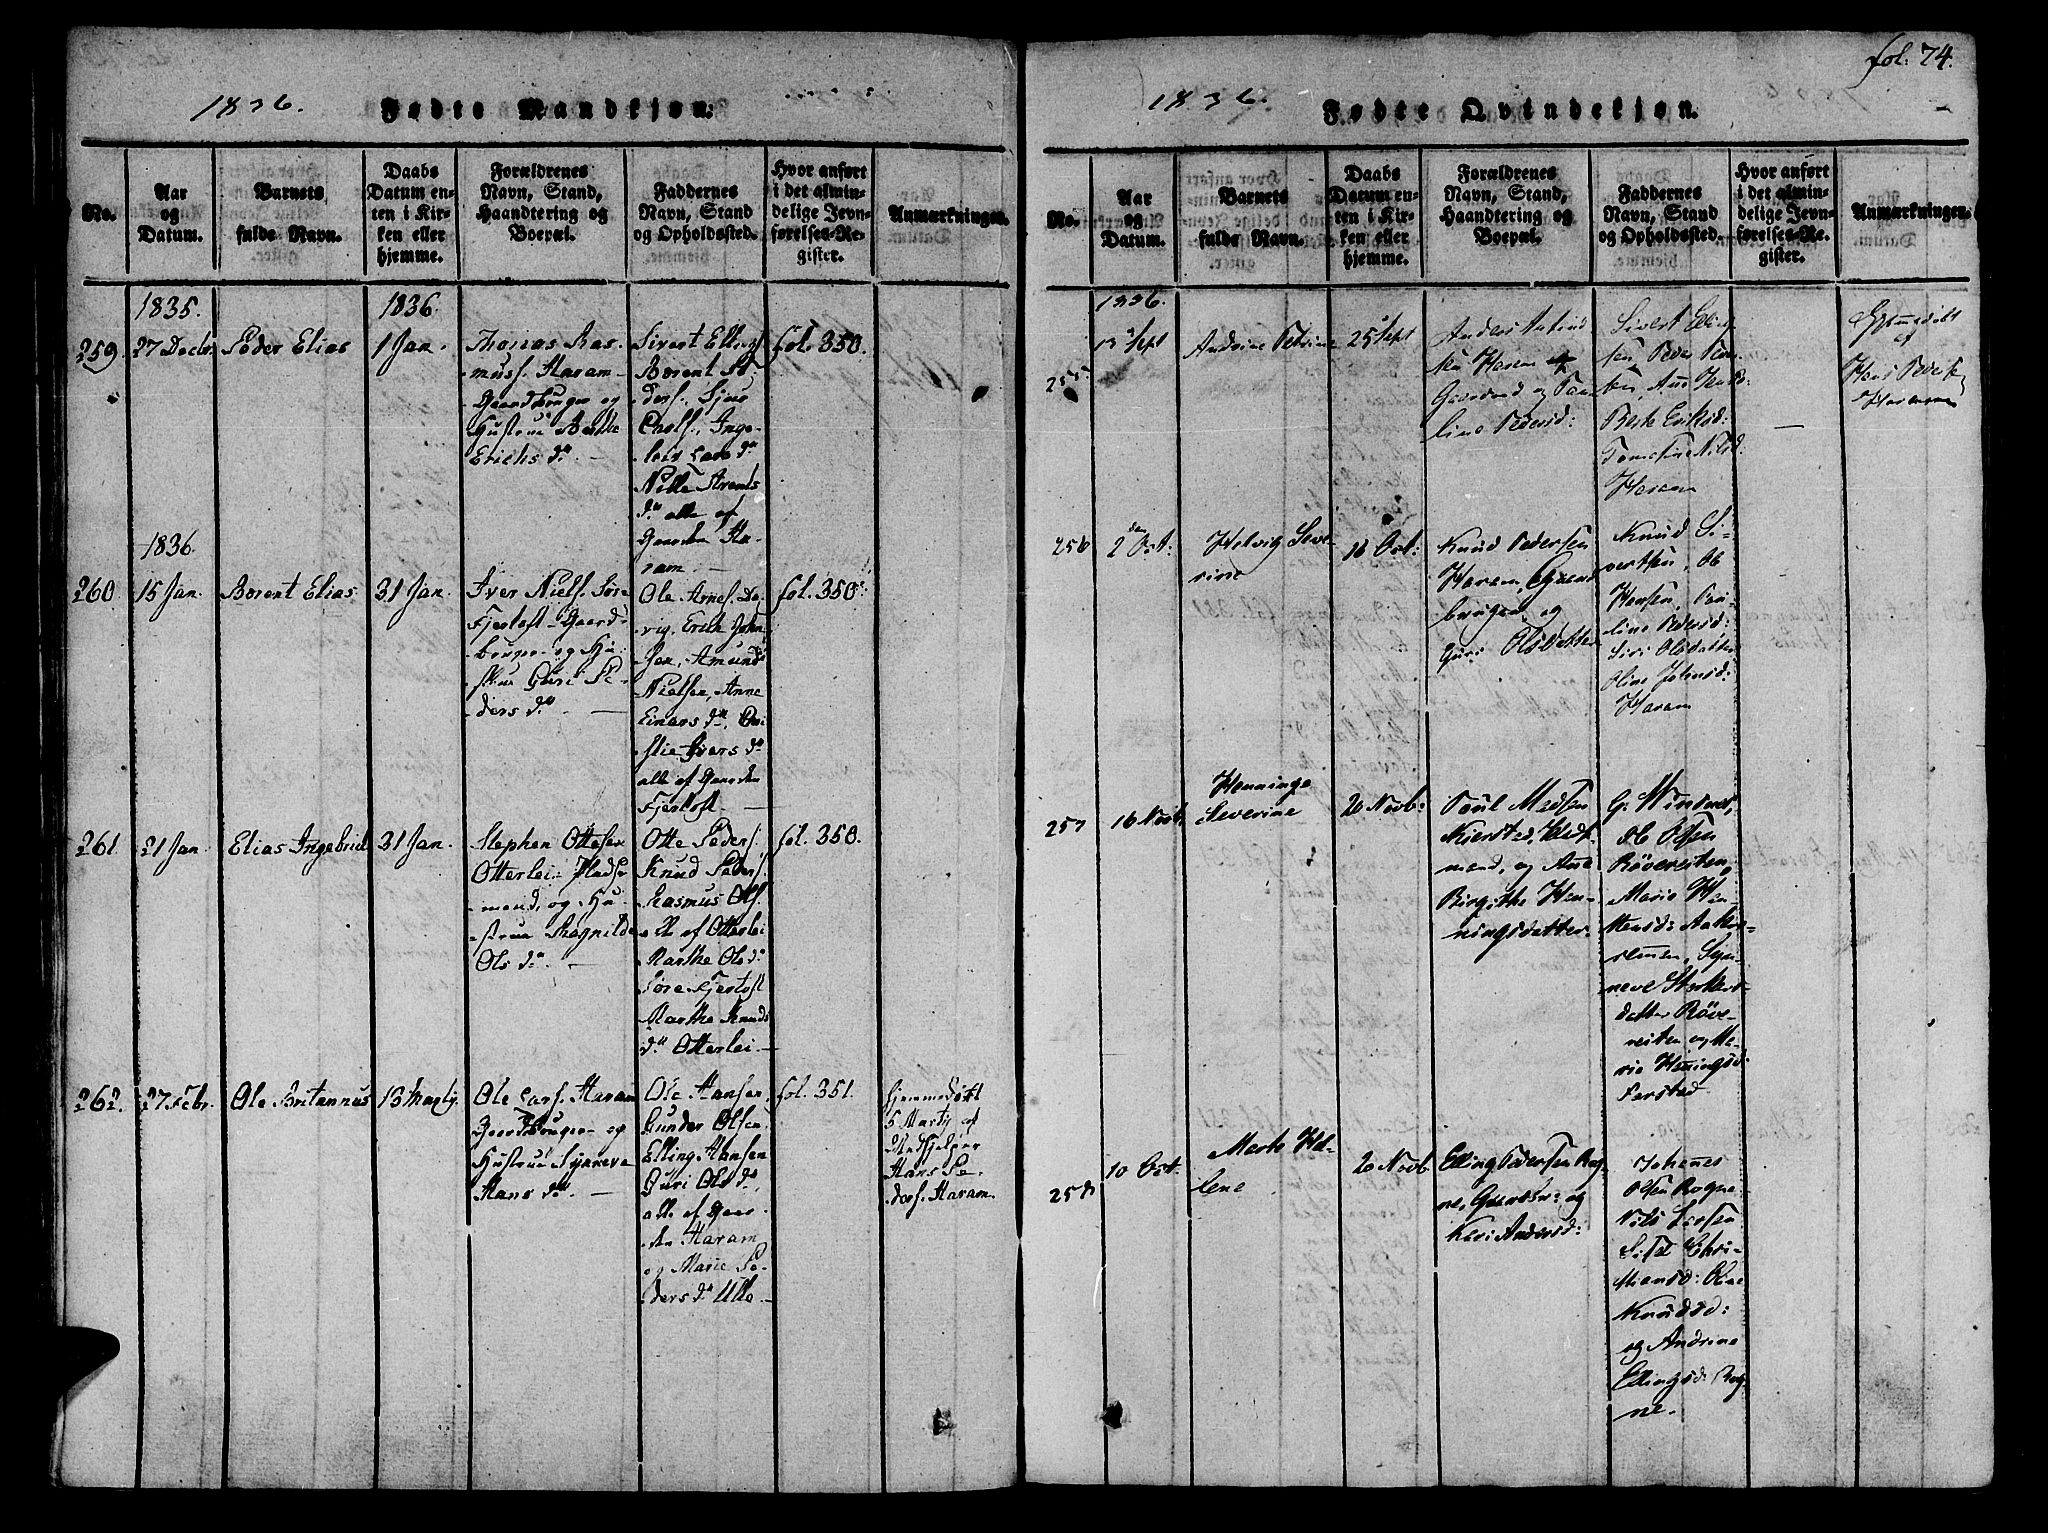 1836.
Fødte Mandkjøn.
No.
Aar
og
Datum.
Barnets
fulde Navn.
Daabs
Datum en-
ten i Kir-
ken eller
hjemme.
Forældrenes
Navn, Stand,
Haandtering og
Boepæl.
Faddernes
Navn, Stand
og Opholdssted.
Hvor anført
i det almin-
delige Jevn-
førelses-Re-
gister.
Anmærkninger.
259.
1835.
27 Decbr.
Peder Elias
1836.
1 Jan.
Thomas Ras-
muss. Haram
Gaardbruger og
Hustrue Berthe
Erichs d.
Sivert Ellings.
Berent Pe-
ders.
Nille
alle af
Gaarden Ha-
ram
fol. 350.
260
1836.
15 Jan.
Berent Elias
31 Jan.
Iver Niels. Søre
Fjertoft Gaard-
bruger og Hu-
strue Guri Pe-
ders d.
Ole Arnes. Da-
vig, Erich John-
sen, Amund
Nielsen, Anne
Einars d.
Ivers d.
alle af Gaarden
Fjertoft
fol. 350.
261.
21 Jan.
Elias Ingebrict
31 Jan.
Stephen Ottesen
Otterlei Pladse-
mand, og Hu-
strue Ragnilde
Ols d.
Otte Peders.
Knud Peders.
Rasmus Ols.
alle af Otterlei
Marthe Ols d.
Søre Fjertoft
Marthe Knuds
d. Otterlei
fol. 350.
262.
27 Febr.
Ole Britannus
13 Martz.
Ole Lars. Haram
Gaardbruger og
Hustrue Synneve
Hans d.
Ole Hansen,
Gunder Olsen
Elling Hansen
Guri Ols d.
alle af Gaar-
den Haram
og Marie Pe-
ders d. Ulle
fol. 351.
Hjemmedøbt
5 Martz af
Hans Pe-
ders. Haram.
fol. 74.
1836.
Fødte Qvindekjøn.
No.
Aar
og
Datum.
Barnets
fulde Navn.
Daabs
Datum en-
ten i Kir-
ken eller
hjemme.
Forældrenes
Navn, Stand,
Haandtering og
Boepæl.
Faddernes
Navn, Stand
og Opholdssted.
Hvor anført
i det almin-
delige Jevn-
førelses-Re-
gister.
Anmærkninger.
255
1836.
13 Sept
Andrine Petrine
25 Sept
Anders
sen Haram
og Pau-
line Pedersd:
Sivert Elling-
sen, Peder
Berte Eriksd:
Nilsd.
Haram
af
Hans Peders.
Haram
256
den
2 Oct:
Helvig Seve-
rine
16 Oct:
Knud Pedersen
Haram, Gaard-
bruger og
Guri Olsdatter
Knud Si-
vertsen, Ole
Hansen, Pau-
line Pedersd:
Siri Olsdatter
Oline Johnsd:
Haram
257
16 Novb.
Henninge
Severine
20 Novb:
Poul Madsen
mand, og Ane
Birgithe Hen-
ningsdatter.
Ole Olsen
Røvereiten,
Marie Hen-
Syn-
neve
datter Røve-
reiten og Ma-
rie Henningsd:
258
10 Oct.
Marte He-
lene
20 Novb
Elling Pedersen Rog-
ne, Gaardbr: og
Kari Andersd:
Johanes
Olsen Rogne
Nils Larsen
Sidsel Chri-
stiansd: Oline
Knudsd:
og Andrine
Ellingsd: Rog-
ne.